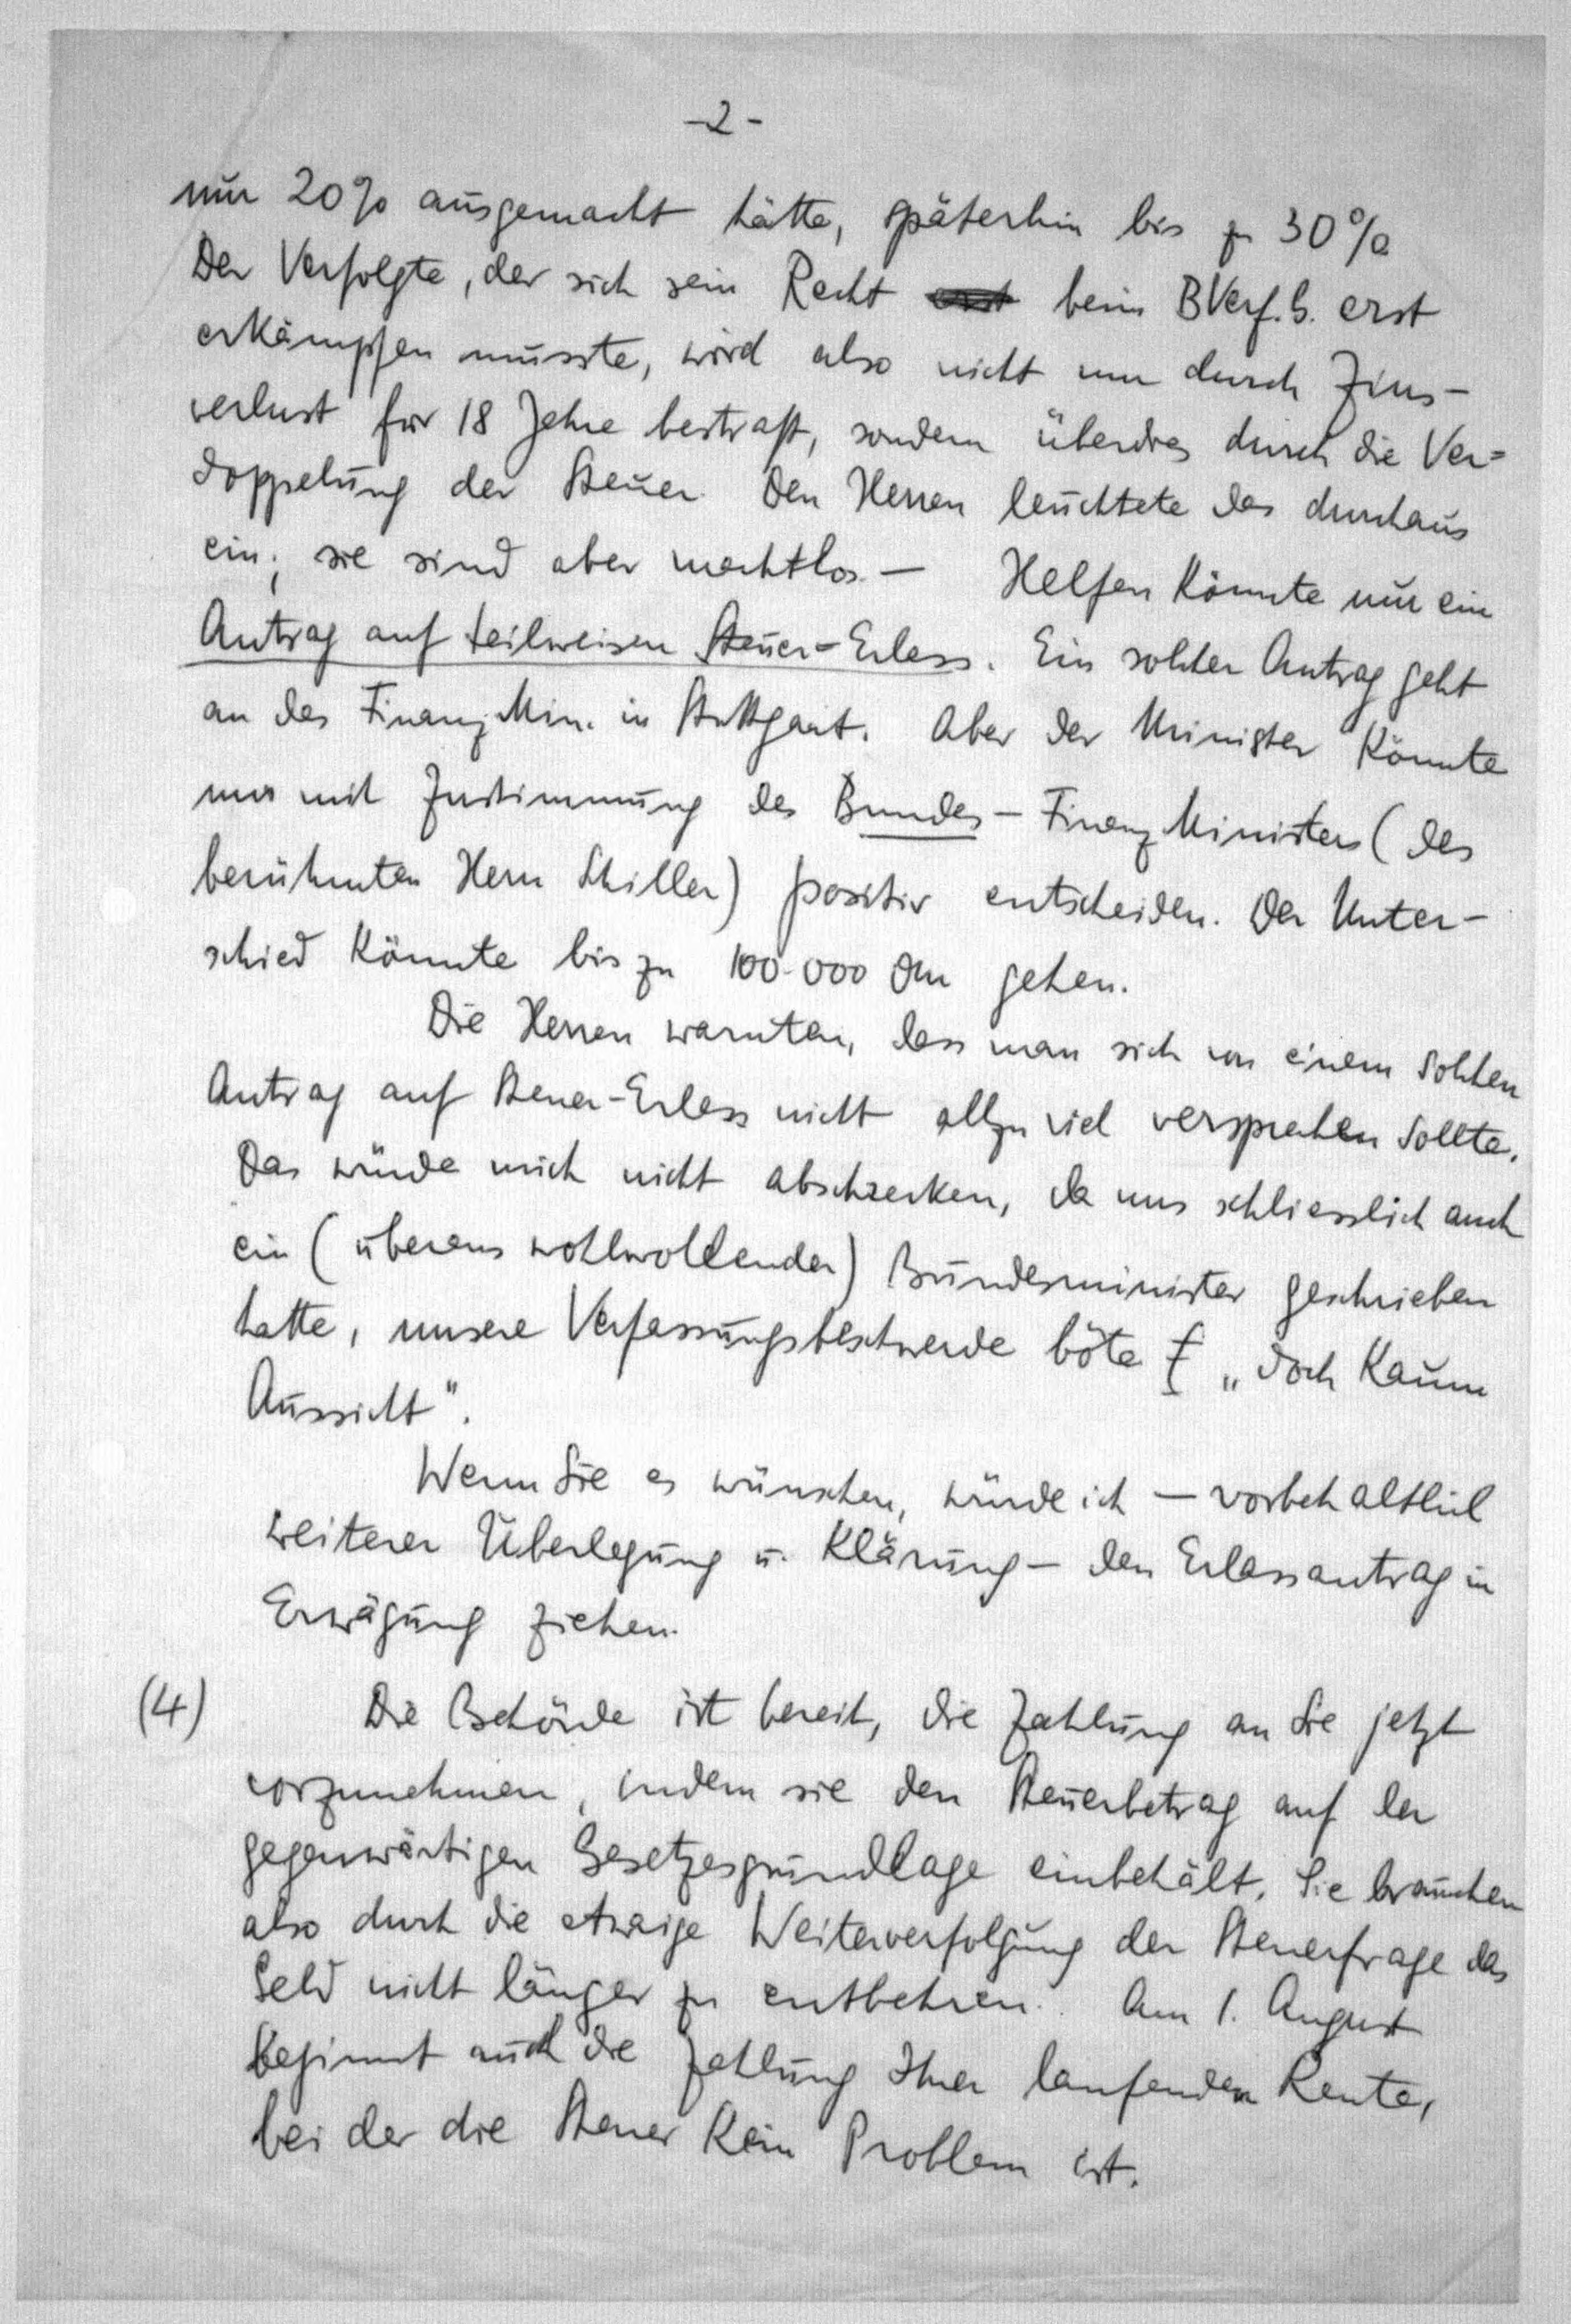 -2-
nur 20% ausgemacht hätte, späterhin bis zu 30%
Der Verfolgte, der sich sein Recht erst beim BVerf.G. erst
erkämpfen musste, wird also nicht nur durch Zins-
verlust für 18 Jahre bestraft, sondern überdies durch die Ver=
doppelung der Steuer. Den Herren leuchtete das durchaus
ein; sie sind aber machtlos. — Helfen könnte nur ein
Antrag auf teilweisen Steuer=Erlass. Ein solcher Antrag geht
an das Finanz Min. in Stuttgart. Aber der Minister könnte
nur mit Zustimmung des Bundes-Finanz Ministers (des
berühmten Herrn Schiller) positiv entscheiden. Der Unter-
schied könnte bis zu 100.000 DM gehen.
Die Herren warnten, dass man sich von einem solchen
Antrag auf Steuer-Erlass nicht allzu viel versprechen sollte.
Das würde mich nicht abschrecken, da uns schliesslich auch
ein (überaus wohlwollender) Bundesminister geschrieben
hatte, unsere Verfassungsbeschwerde böte „doch kaum
Aussicht".
Wenn Sie es wünschen, würde ich — vorbehaltlich
weiterer Überlegung u. Klärung — den Erlassantrag in
Erwägung ziehen.
(4) Die Behörde ist bereit, die Zahlung an Sie jetzt
vorzunehmen, indem sie den Steuerbetrag auf der
gegenwärtigen Gesetzesgrundlage einbehält. Sie brauchen
also durch die etwaige Weiterverfolgung der Steuerfrage das
Geld nicht länger zu entbehren. Am 1. August
beginnt auch die Zahlung Ihrer laufenden Rente,
bei der die Steuer kein Problem ist.